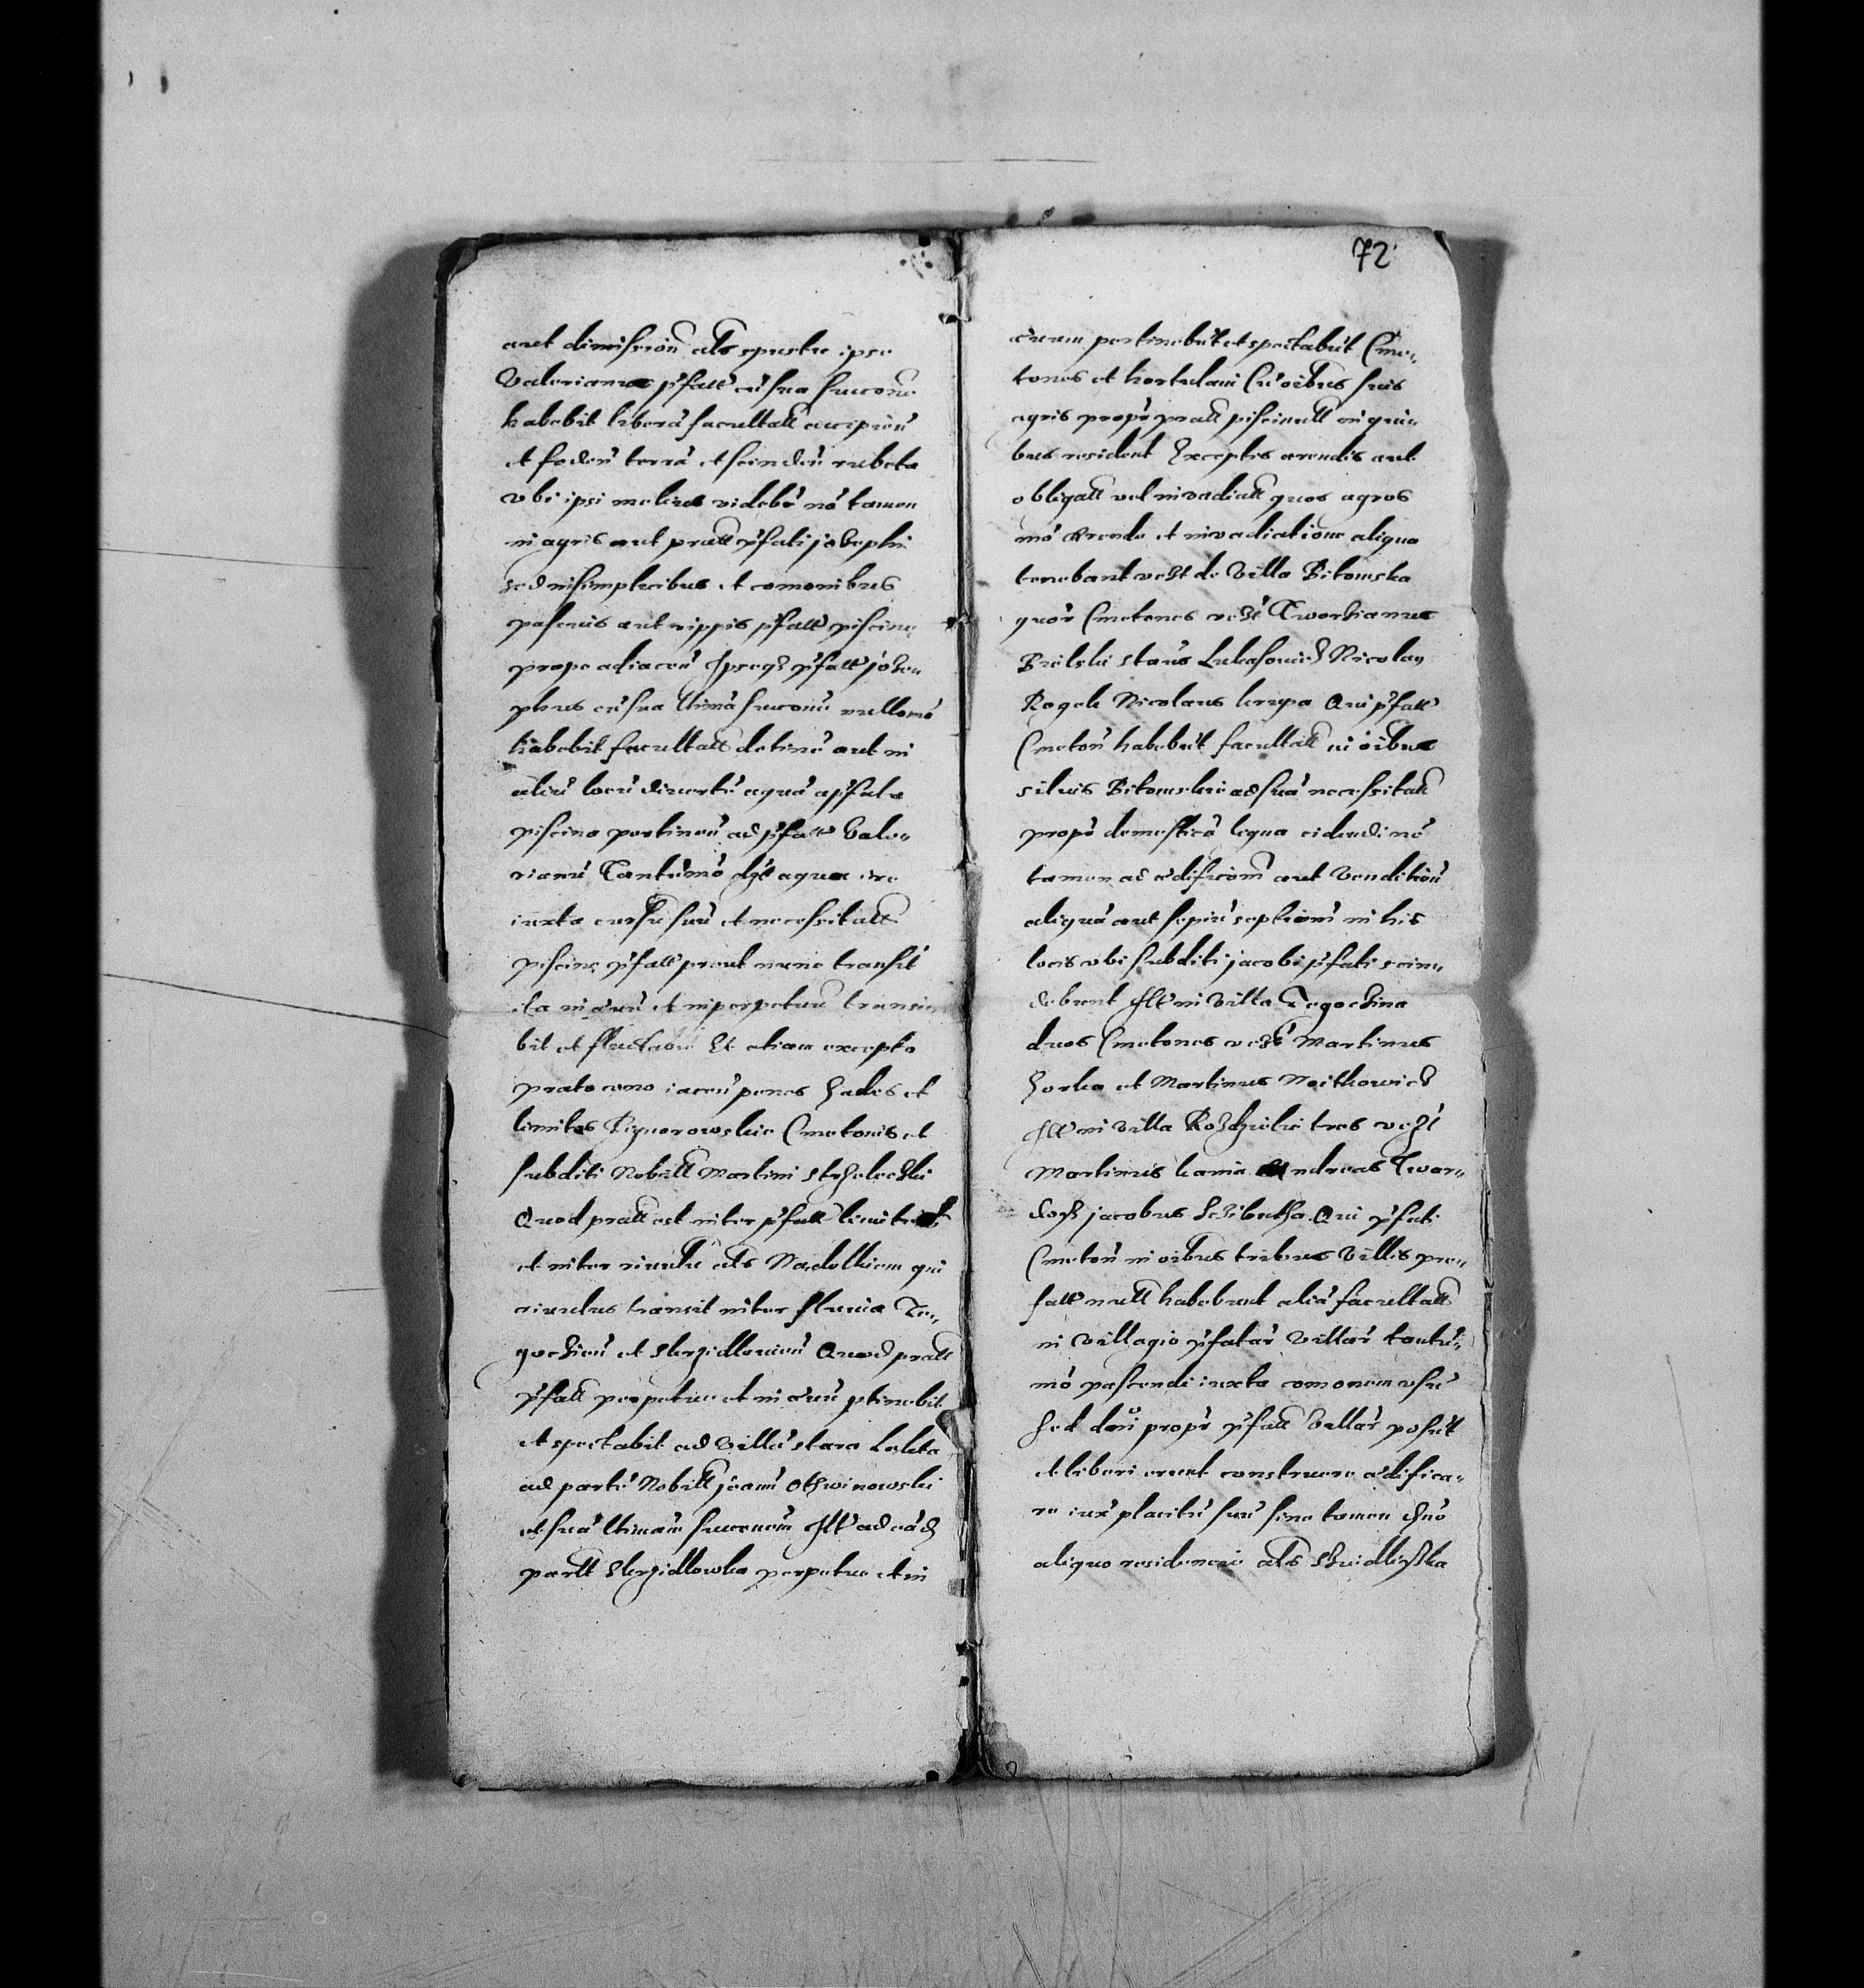 aut dimission als spustu ipse
Valerianus p̃fatt cũ sua succone
habebit liberã facultatt accipien̄
et foden̄ terrã et scinden̄ rubeta
vbi ipsi melius videbr̃ nõ tamen
in agris aut pratt p̃fati josephi
sed in simplicibus et comonibus
pascuis aut rippis p̃fatt piscine
prope adiacen̄ Ipseqz p̃fatt jose„
phus cũ sua lltimã succone nullomõ
habebit facultatt detinẽ aut in
aliũ locũ divertẽ aquã a p̃fata
piscina pertinen̄ ad p̃fatt Vale„
rianũ Tantũmõ aqua ire
iuxta cursũ suũ et necessitatt
piscine p̃fatt prout nunc transit
ita in evũ et in perpetuũ transi
bit et Et etiam excepto
prato uno iacen̄ penes et
limites Pignorowskie Cmetonis et
subditi Nobilt Martini Strzeleczki
Quod pratt est inter p̃fatt limites
et inter rivulũ als Nadolkiem qui
rivulus transit inter fluvia Te„
goczin̄ et Skrzidlowien̄ Quod pratt
p̃fatt perpetue et in evũ ptinebit
et spectabit ad villã stara
ad partẽ Nobilt joanni Othwinowski
et suã lltimam succonem Itt ad eãdz
partt Skrzidlowka perpetue et in
72
evum pertinebũt et spectabũt Cme„
tones et hortulani Cũ oibus suis
agris propr̃ pratt piscinatt in qui„
bus resident Exceptis arendis aut
obligatt vel invadiatt quos agros
mõ Arende et invadiatione aliqua
tenebant vczt de Villa Bitomska
quor̃ Cmetones vczt Twortzianus
Brilski staũs Lukasowicz Nicolay
Rogala Nicolaus krupa Qui p̃fatt
Cmeton̄ habebũt facultatt in oibus
silvis Bitomskie ad suã necessitatt
propr̃ domesticã ligna cidendi nõ
tamen ad edificiom̄ aut Venditiõn
aliquã aut sepiũ septionẽ in his
locis vbi subditi jacobi p̃fati scin„
debunt Itt in Villa Tegoczina
duos Cmetones vczt Martinus
Zorka et Martinus Noitkowicz
Itt in Villa tres vczt
Martinus kania Andreas Twar„
dosz jacobus Qui p̃fati
Cmeton̄ in oibus tribus Villis pre„
fatt nutt habebunt aliã facultatt
in Villagio p̃fatar̃ Villar̃ tantũ„
mõ pascendi iuxta comonem usũ
Sed dnĩ propr̃ p̃fatt Villar̃ posũt
et liberi erunt construere edifica„
re iux̃ placitũ suũ sine tamen
aliquo residencie als Szidlisska